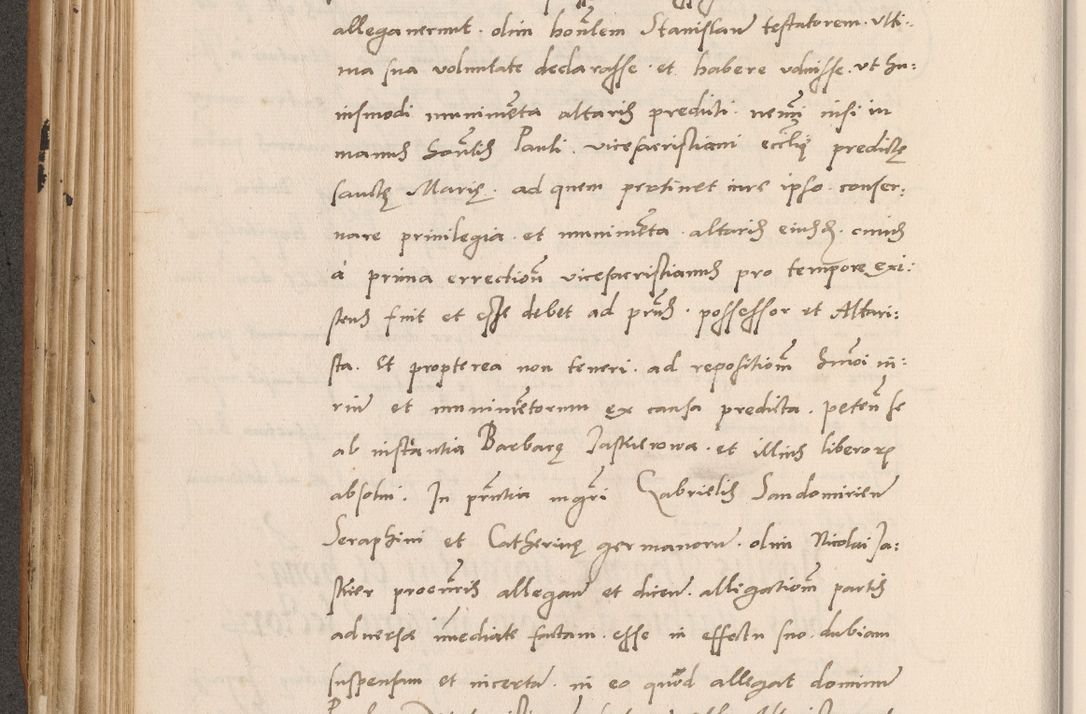 allegaverunt . olim honēlem Stanislaū testatorem . ulti:
ma sua voluntate declarasse . et habere voluisse . ut hu:
iusmodi munimēta altaris predicti . nemi nisi in
manus honēlis Pauli . vicesacristiani ecclię predictę
sanctę Marię . ad quem pertinet iure ipso . conser:
vare privilegia . et munimēta . altaris eiusd . cuius
á prima errectioñ vicesacristianus pro tempore exi:
stens fuit et esse debet ad pr̃ns . possessor et Altari:
sta . Et propterea non teneri . ad repositioñ hmoi iu:
riū et munimētorum ex causa predicta . peteñ se
ab instantia Barbarę Jastrierowa . et illius liberorꝝ
absolui . In pr̃ntia mgr̃i Gabrielis Sandomirień
Seraphini et Catherinę germanorū . olim Nicolai Ja:
strier procur̃is allegañ et diceñ . alligatioñ partis
adversę imediate factam . esse in effectu suo . dubiam
suspensam et incertā . in eo quod allegat dominū